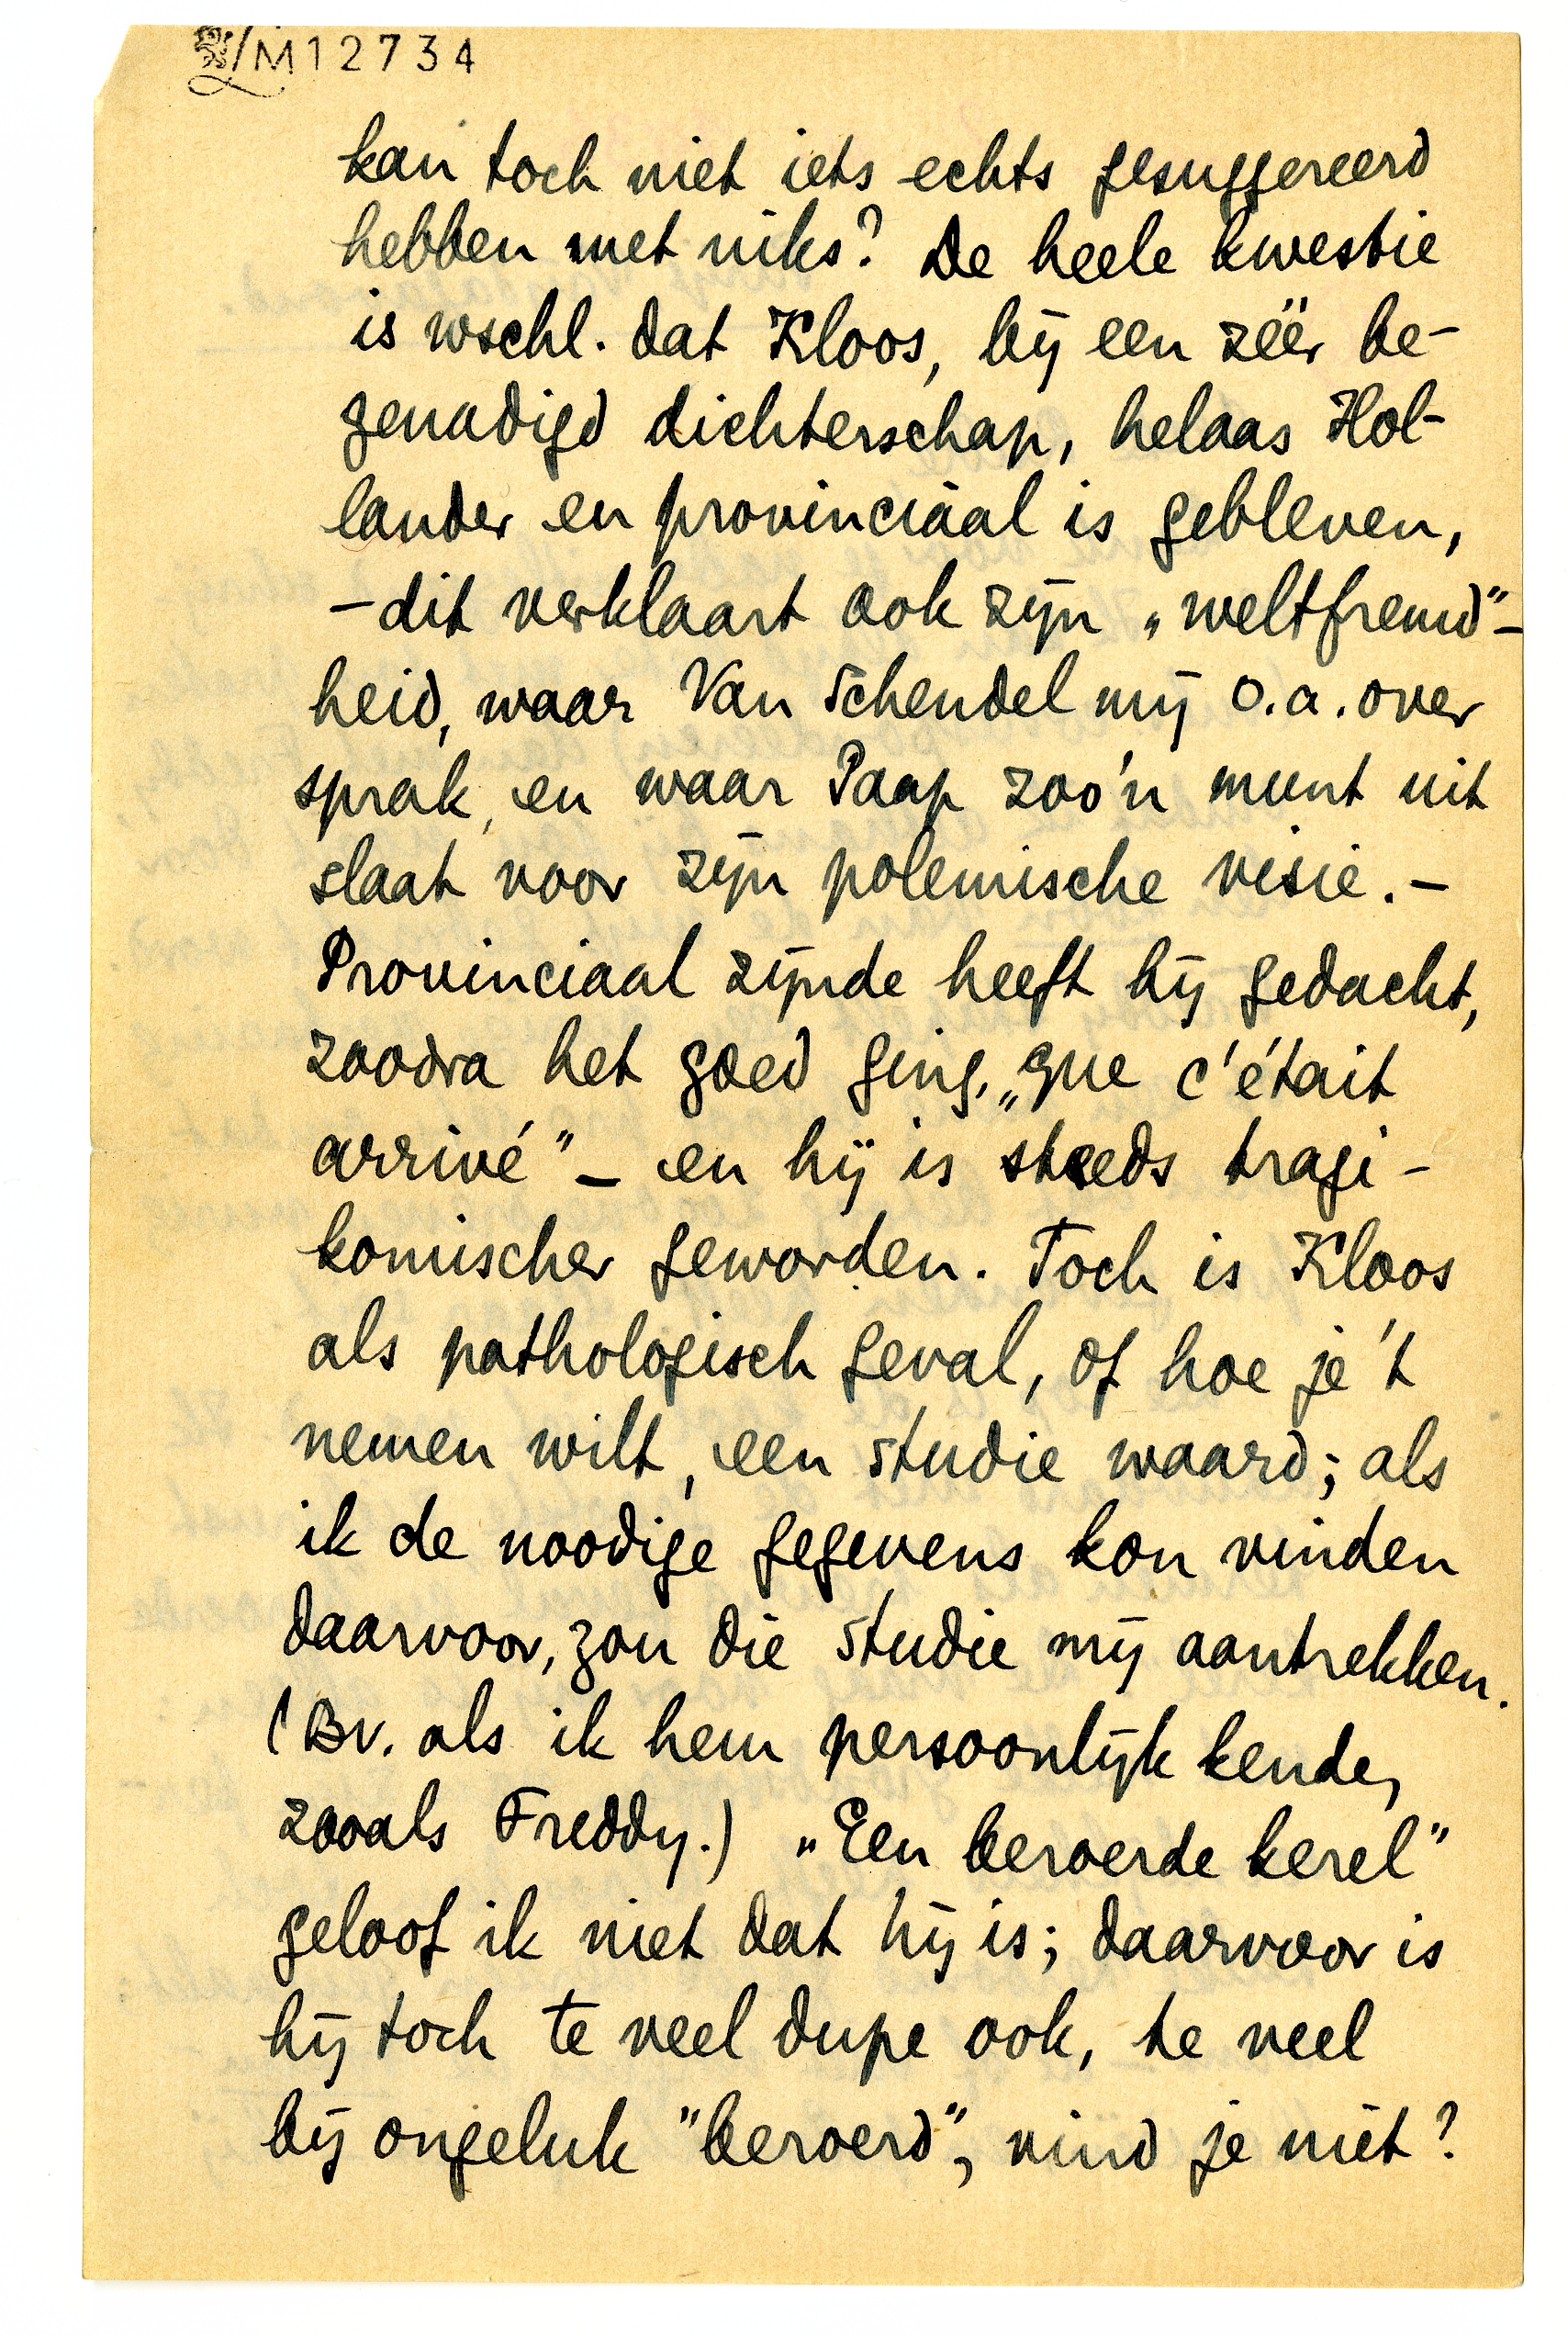 M12734
kan toch niet iets echts gesuggereerd
hebben met niks? De heele kwestie
is wschl. dat Kloos, bij een zéér be-
genadigd dichterschap, helaas Hol-
lander en provinciaal is gebleven,
– dit verklaart ook zijn „weltfremd"-
heid, waar Van Schendel mij o.a. over
sprak, en waar Paap zoo'n munt uit
slaat voor zijn polemische visie. –
Provinciaal zijnde heeft hij gedacht,
zoodra het goed ging, „que c'était
arrivé" – en hij is steeds tragi-
komischer geworden. Toch is Kloos
als pathologisch geval, of hoe je 't
nemen wilt, een studie waard; als
ik de noodige gegevens kon vinden
daarvoor, zou die studie mij aantrekken.
(Bv. als ik hem persoonlijk kende,
zooals Freddy.) „Een beroerde kerel"
geloof ik niet dat hij is; daarvoor is
hij toch te veel dupe ook, te veel
bij ongeluk "beroerd", vind je niet?